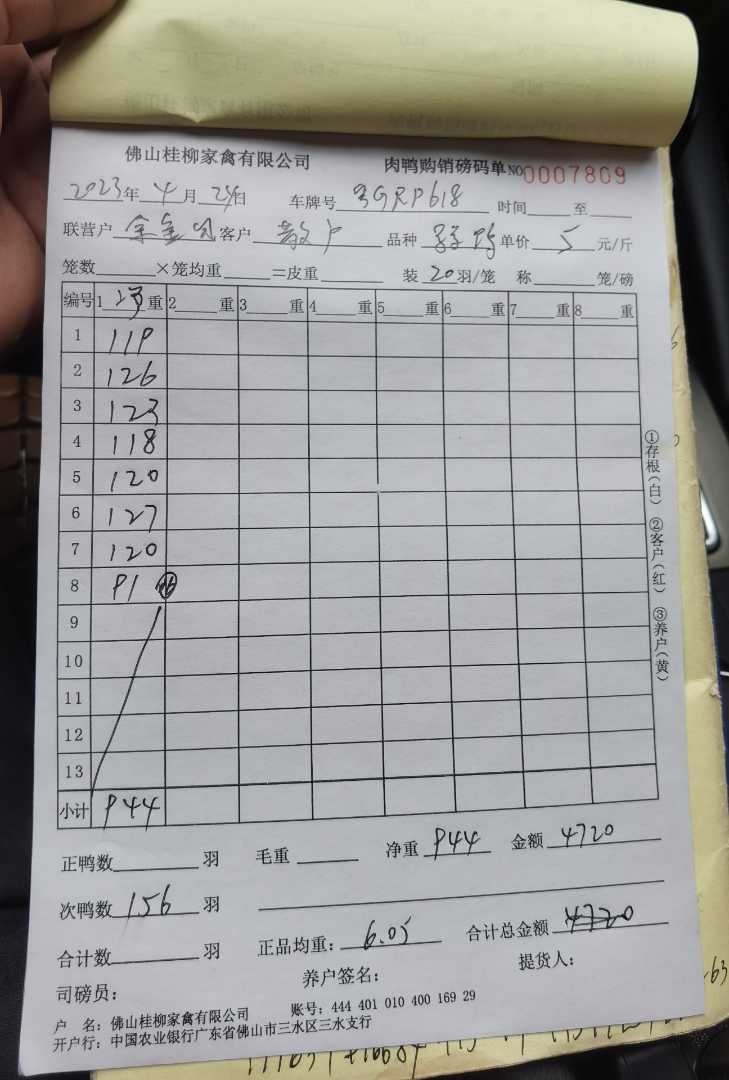 佛山桂柳家禽有限公司 肉鸭购销磅码单 NO 0007809
2023年 4 月 24日 车牌号 GRP618 时间 至
联营户 余 客户 散户 品种 单价 5 元/斤
笼数 ×笼均重 =皮重 装 20 羽/笼 称 笼/磅
编号 1 净 重 2 重 3 重 4 重 5 重 6 重 7 重 8 重
1 119
2 126
3 123
4 118
5 120
6 127
7 120
8 91
9
10
11
12
13
小计 944
正鸭数 羽 毛重 净重 944 金额 4720
次鸭数 156 羽
合计数 羽 正品均重: 6.05 合计总金额 4720
司磅员: 养户签名: 提货人:
户 名: 佛山桂柳家禽有限公司 账号: 444 401 010 400 169 29
开户行: 中国农业银行广东省佛山市三水区三水支行
①存根(白) ②客户(红) ③养户(黄)